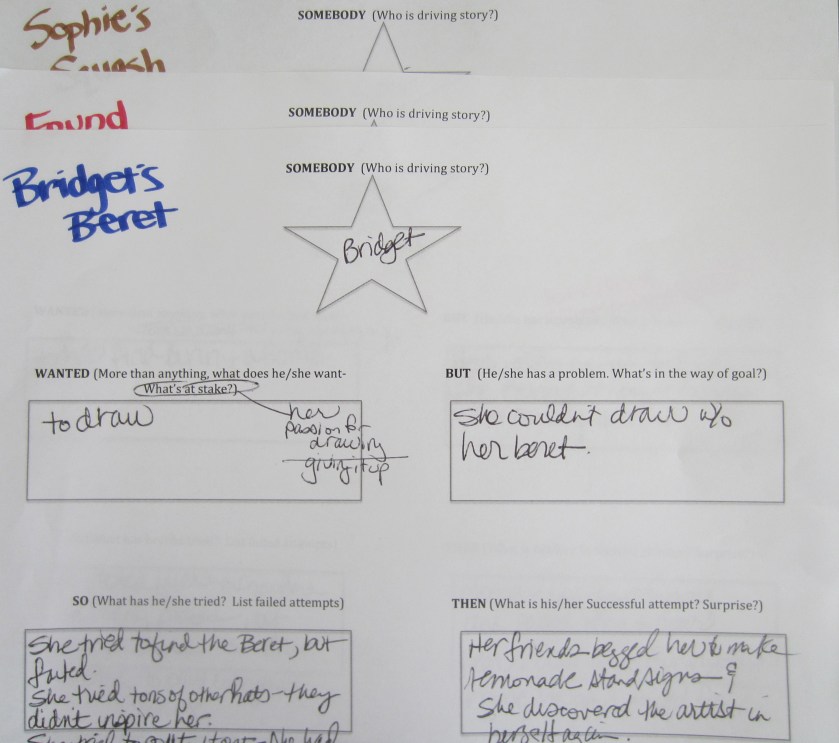 Sophie's
Squash
SOMEBODY (Who is driving story?)
Found
SOMEBODY (Who is driving story?)
Bridget's
Beret
SOMEBODY (Who is driving story?)
Bridget
WANTED (More than anything, what does he/she want-
What's at stake?)
to draw
her
passion for
drawing
giving it up
BUT (He/she has a problem. What's in the way of goal?)
She couldn't draw w/o
her beret.
SO (What has he/she tried? List failed attempts)
She tried to find the Beret, but
failed.
She tried tons of other hats - they
didn't inspire her.
She tried to
THEN (What is his/her Successful attempt? Surprise?)
Her friends begged her to make
lemonade stand signs - &
She discovered the artist in
herself again.